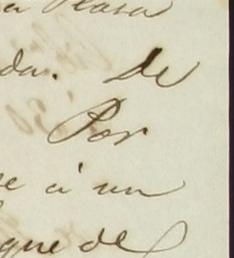 a Plasa
da. De
Por
e a un
que de